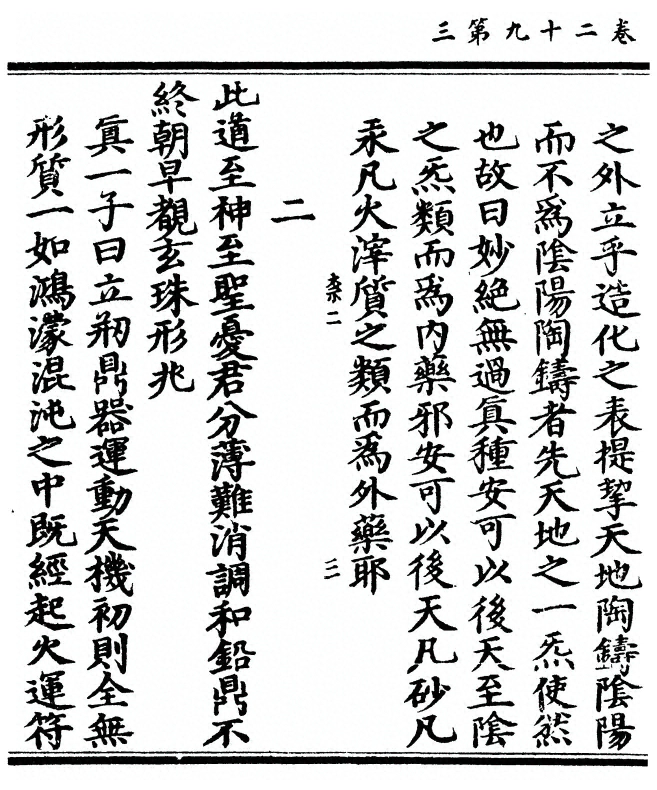 三第九十二卷
之外立乎造化之表提挈天地陶鑄陰陽
而不爲陰陽陶鑄者先天地之一炁使然
也故曰妙絶無過眞種安可以後天至陰
之炁類而爲内藥邪安可以後天凡砂凡
汞凡火滓質之類而爲外藥耶
柰二
三
二
此道至神至聖憂君分薄難消調和鉛鼎不
終朝早覩玄珠形兆
眞一子曰立剏鼎器運動天機初則全無
形質一如鴻濛混沌之中既經起火運符